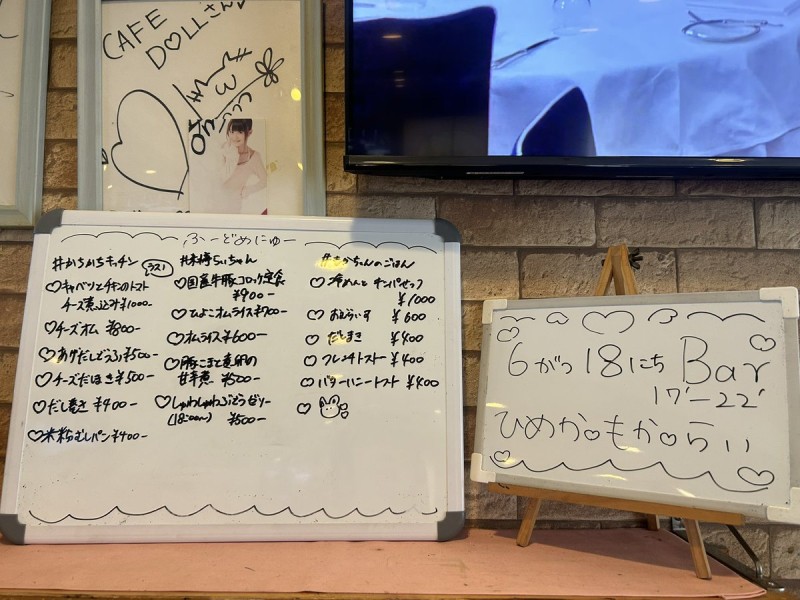 CAFE
DOLLさん
ふーどめにゅー
#かちかちキッチン
ラスト
♡キャベツとチキンのトマト
チーズ煮込み¥1000-
♡チーズオム ¥800-
♡あげだしどうふ¥500-
♡チーズだし巻き¥500-
♡だし巻き ¥400-
♡米粉むしパン¥400-
♡国産牛豚コロッケ定食
¥900-
♡ひよこオムライス¥700-
♡オムライス¥600-
甘辛煮 ¥500-
♡しゅわしゅわぶどうゼリー
(18:00〜) ¥500-
¥1000
♡ おむらいす ¥600
♡ だしまき ¥400
♡ フレンチトースト ¥400
♡ バターハニートースト ¥400
6がつ18にち Bar
17'-22'
ひめか♡もか♡らい